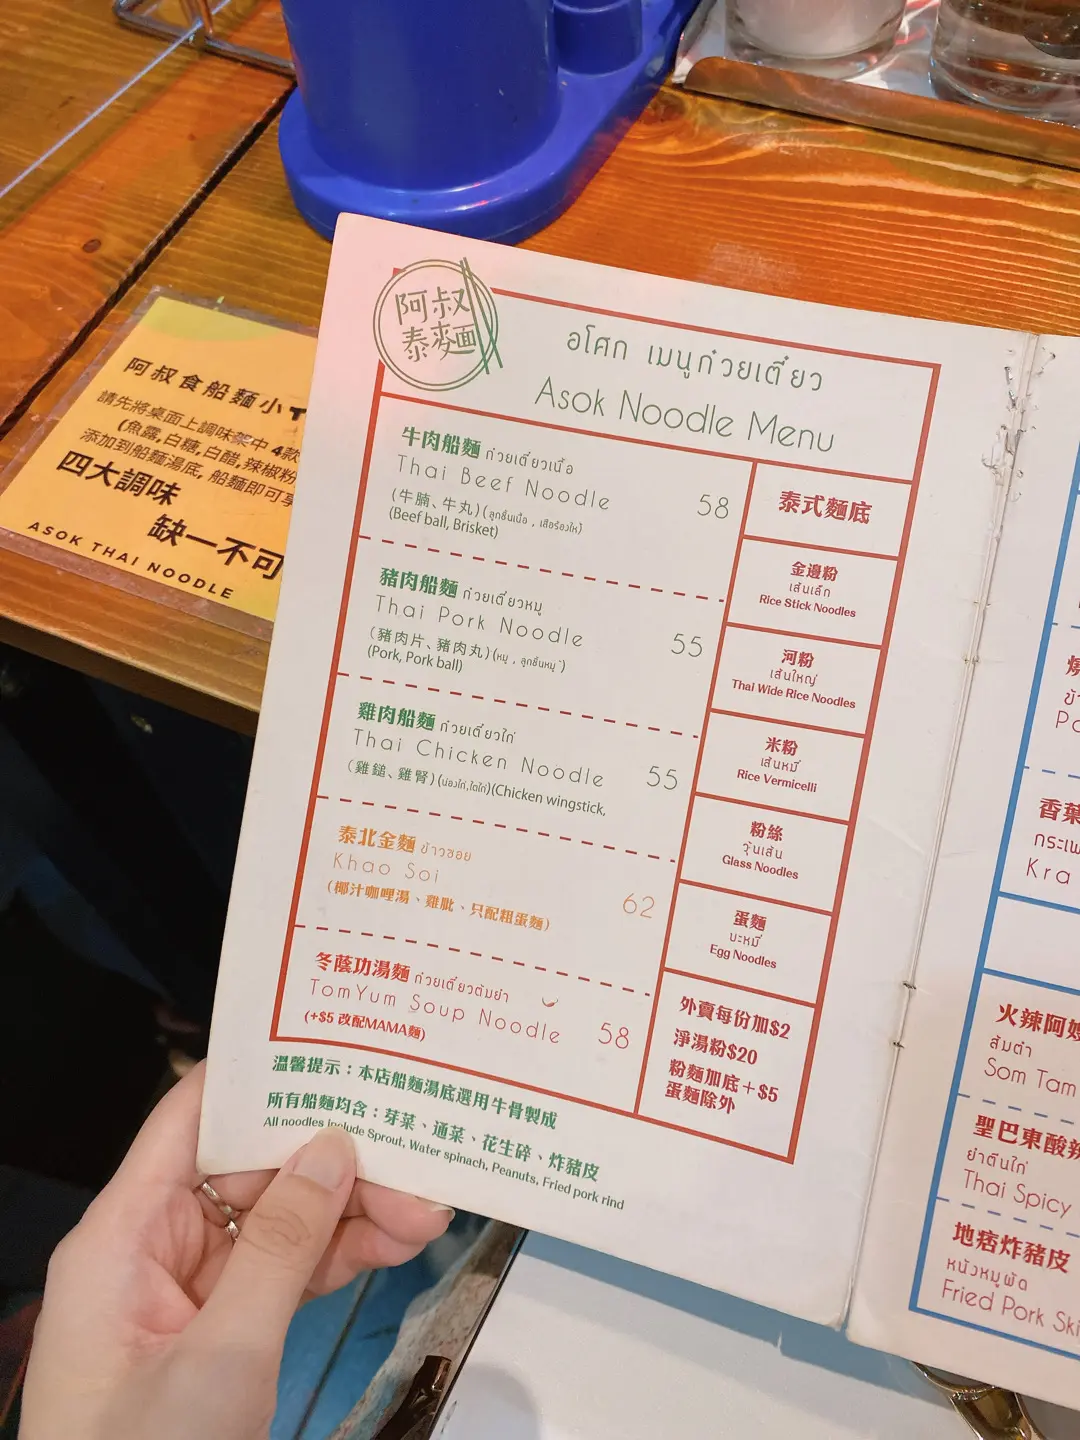 阿叔
泰麵
อโศก เมนูก๋วยเตี๋ยว
Asok Noodle Menu
牛肉船麵 ก๋วยเตี๋ยวเนื้อ
Thai Beef Noodle 58
(牛腩、牛丸)(ลูกชิ้นเนื้อ , เสือร้องไห้)
(Beef ball, Brisket)
豬肉船麵 ก๋วยเตี๋ยวหมู
Thai Pork Noodle 55
(豬肉片、豬肉丸)(หมู , ลูกชิ้นหมู)
(Pork, Pork ball)
雞肉船麵 ก๋วยเตี๋ยวไก่
Thai Chicken Noodle 55
(雞鎚、雞腎)(น่องไก่,ไตไก่)(Chicken wingstick,
泰北金麵 ข้าวซอย
Khao Soi 62
(椰汁咖哩湯、雞肶、只配粗蛋麵)
冬蔭功湯麵 ก๋วยเตี๋ยวต้มยำ
TomYum Soup Noodle 58
(+$5 改配MAMA麵)
泰式麵底
金邊粉
เส้นเล็ก
Rice Stick Noodles
河粉
เส้นใหญ่
Thai Wide Rice Noodles
米粉
เส้นหมี่
Rice Vermicelli
粉絲
วุ้นเส้น
Glass Noodles
蛋麵
บะหมี่
Egg Noodles
外賣每份加$2
淨湯粉$20
粉麵加底+$5
蛋麵除外
溫馨提示：本店船麵湯底選用牛骨製成
所有船麵均含：芽菜、通菜、花生碎、炸豬皮
All noodles include Sprout, Water spinach, Peanuts, Fried pork rind
阿叔食船麵小
請先將桌面上調味架中 4款
(魚露,白糖,白醋,辣椒粉
添加到船麵湯底, 船麵即可享
四大調味
缺一不可
ASOK THAI NOODLE
燒
香葉
กระเพ
Kra
火辣阿嬌
ส้มตำ
Som Tam
聖巴東酸辣
ยำตีนไก่
Thai Spicy
地痞炸豬皮
หนังหมูผัด
Fried Pork Ski